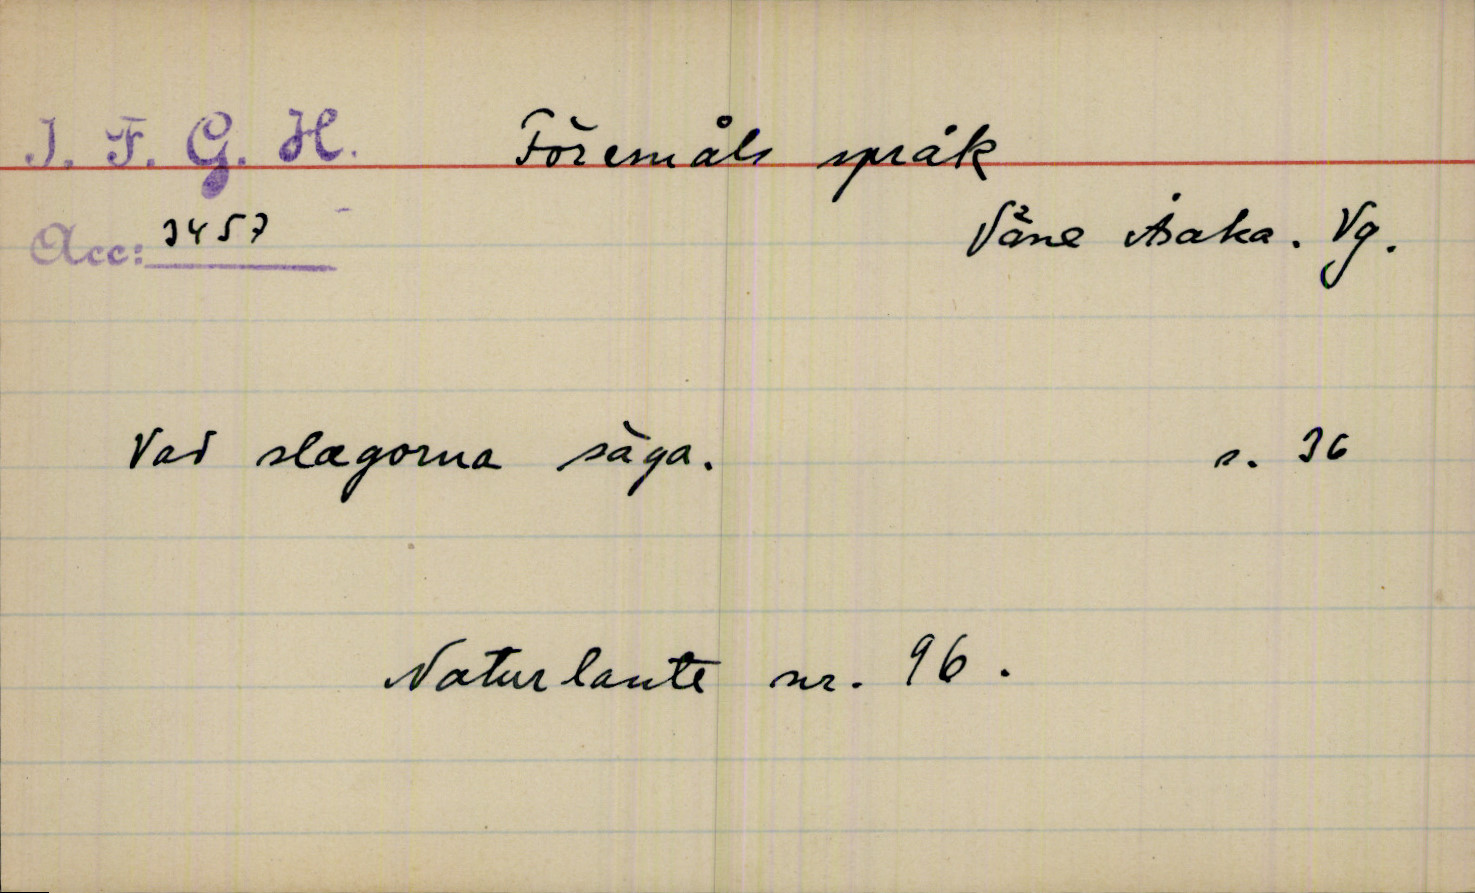 I. F. G. H. Föremåls språk
Acc: 3457 Väne Åsaka. Vg.
Vad slagorna säga. s. 36
Naturlaute nr. 96.